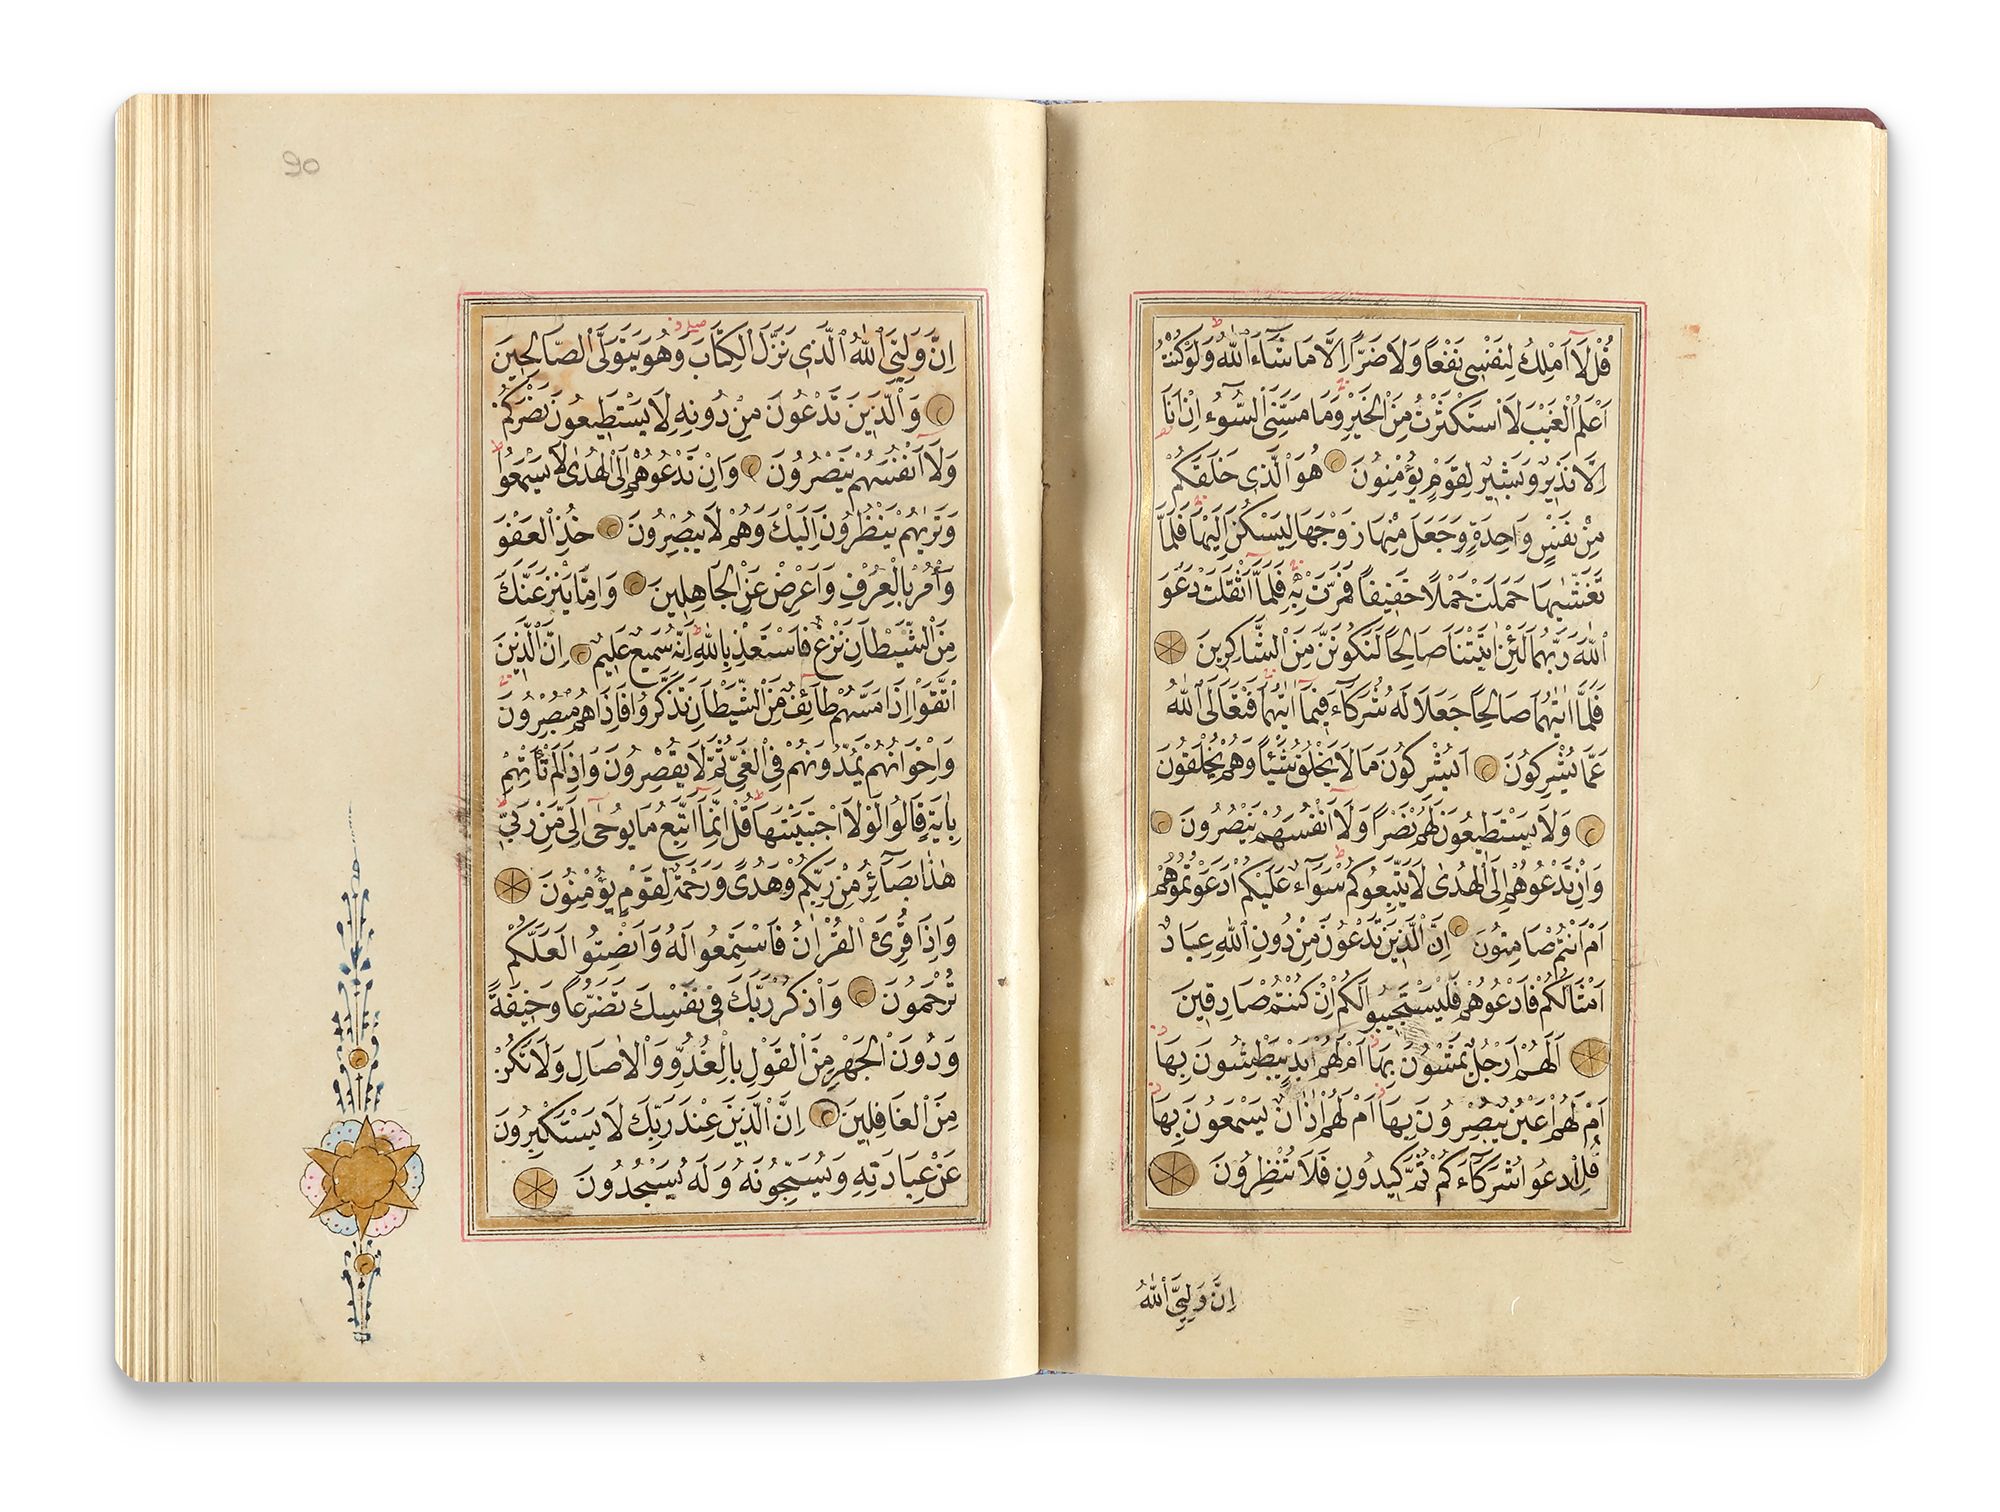 قُلْ لَا اَمْلِكُ لِنَفْسِى نَفْعاً وَلَا ضَرًّا اِلَّا مَا شَآءَ اللّٰهُ وَلَوْ كُنْتُ
اَعْلَمُ الْغَيْبَ لَا اسْتَكْثَرْتُ مِنَ الْخَيْرِ وَمَا مَسَّنِىَ السُّوٓءُ اِنْ اَنَا
اِلَّا نَذِيرٌ وَبَشِيرٌ لِقَوْمٍ يُؤْمِنُونَ هُوَ الَّذِى خَلَقَكُمْ
مِنْ نَفْسٍ وَاحِدَةٍ وَجَعَلَ مِنْهَا زَوْجَهَا لِيَسْكُنَ اِلَيْهَا فَلَمَّا
تَغَشّٰيهَا حَمَلَتْ حَمْلًا خَفِيفاً فَمَرَّتْ بِهِ فَلَمَّٓا اَثْقَلَتْ دَعَوَ
اللّٰهَ رَبَّهُمَا لَئِنْ اٰتَيْتَنَا صَالِحاً لَنَكُونَنَّ مِنَ الشَّاكِرِينَ
فَلَمَّٓا اٰتٰيهُمَا صَالِحاً جَعَلَا لَهُ شُرَكَٓاءَ فِيمَٓا اٰتٰيهُمَا فَتَعَالَى اللّٰهُ
عَمَّا يُشْرِكُونَ اَيُشْرِكُونَ مَا لَا يَخْلُقُ شَيْئاً وَهُمْ يُخْلَقُونَ
وَلَا يَسْتَطِيعُونَ لَهُمْ نَصْراً وَلَٓا اَنْفُسَهُمْ يَنْصُرُونَ
وَاِنْ تَدْعُوهُمْ اِلَى الْهُدٰى لَا يَتَّبِعُوكُمْ سَوَٓاءٌ عَلَيْكُمْ اَدَعَوْتُمُوهُمْ
اَمْ اَنْتُمْ صَامِتُونَ اِنَّ الَّذِينَ تَدْعُونَ مِنْ دُونِ اللّٰهِ عِبَادٌ
اَمْثَالُكُمْ فَادْعُوهُمْ فَلْيَسْتَجِيبُوا لَكُمْ اِنْ كُنْتُمْ صَادِقِينَ
اَلَهُمْ اَرْجُلٌ يَمْشُونَ بِهَا اَمْ لَهُمْ اَيْدٍ يَبْطِشُونَ بِهَا
اَمْ لَهُمْ اَعْيُنٌ يُبْصِرُونَ بِهَا اَمْ لَهُمْ اٰذَانٌ يَسْمَعُونَ بِهَا
قُلِ ادْعُوا شُرَكَٓاءَكُمْ ثُمَّ كِيدُونِ فَلَا تُنْظِرُونَ
اِنَّ وَلِيِّىَ اللّٰهُ
90
اِنَّ وَلِيِّىَ اللّٰهُ الَّذِى نَزَّلَ الْكِتَابَ وَهُوَ يَتَوَلَّى الصَّالِحِينَ
وَالَّذِينَ تَدْعُونَ مِنْ دُونِهِ لَا يَسْتَطِيعُونَ نَصْرَكُمْ
وَلَٓا اَنْفُسَهُمْ يَنْصُرُونَ وَاِنْ تَدْعُوهُمْ اِلَى الْهُدٰى لَا يَسْمَعُوا
وَتَرٰيهُمْ يَنْظُرُونَ اِلَيْكَ وَهُمْ لَا يُبْصِرُونَ خُذِ الْعَفْوَ
وَأْمُرْ بِالْعُرْفِ وَاَعْرِضْ عَنِ الْجَاهِلِينَ وَاِمَّا يَنْزَغَنَّكَ
مِنَ الشَّيْطَانِ نَزْغٌ فَاسْتَعِذْ بِاللّٰهِ اِنَّهُ سَمِيعٌ عَلِيمٌ اِنَّ الَّذِينَ
اتَّقَوْا اِذَا مَسَّهُمْ طَٓائِفٌ مِنَ الشَّيْطَانِ تَذَكَّرُوا فَاِذَا هُمْ مُبْصِرُونَ
وَاِخْوَانُهُمْ يَمُدُّونَهُمْ فِى الْغَىِّ ثُمَّ لَا يُقْصِرُونَ وَاِذَا لَمْ تَأْتِهِمْ
بِاٰيَةٍ قَالُوا لَوْلَا اجْتَبَيْتَهَا قُلْ اِنَّمَٓا اَتَّبِعُ مَا يُوحٰٓى اِلَىَّ مِنْ رَبِّى
هٰذَا بَصَٓائِرُ مِنْ رَبِّكُمْ وَهُدًى وَرَحْمَةٌ لِقَوْمٍ يُؤْمِنُونَ
وَاِذَا قُرِئَ الْقُرْاٰنُ فَاسْتَمِعُوا لَهُ وَاَنْصِتُوا لَعَلَّكُمْ
تُرْحَمُونَ وَاذْكُرْ رَبَّكَ فِى نَفْسِكَ تَضَرُّعاً وَخِيفَةً
وَدُونَ الْجَهْرِ مِنَ الْقَوْلِ بِالْغُدُوِّ وَالْاٰصَالِ وَلَا تَكُنْ
مِنَ الْغَافِلِينَ اِنَّ الَّذِينَ عِنْدَ رَبِّكَ لَا يَسْتَكْبِرُونَ
عَنْ عِبَادَتِهِ وَيُسَبِّحُونَهُ وَلَهُ يَسْجُدُونَ